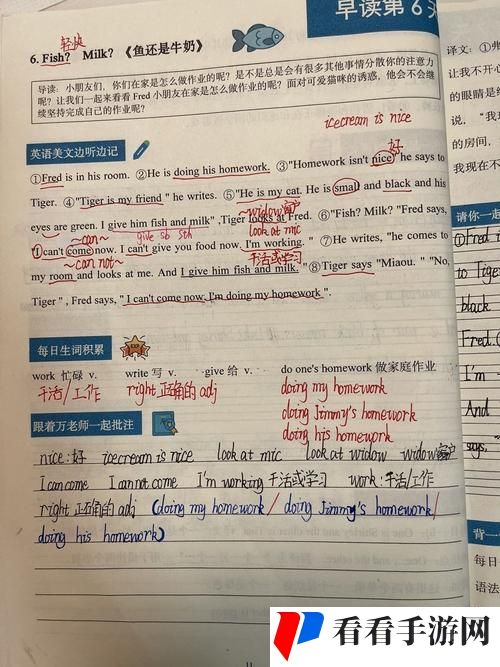 早读第6天
轻快
6. Fish? Milk? 《鱼还是牛奶》
导读:小朋友们,你们在家是怎么做作业的呢?是不是总是会有很多其他事情分散你的注意力
呢?让我们一起来看看Fred小朋友在家是怎么做作业的呢?面对可爱猫咪的诱惑,他会不会继
续坚持完成自己的作业呢?
icecream is nice
英语美文边听边记
好
①Fred is in his room. ②He is doing his homework. ③"Homework isn't nice," he says to
Tiger. ④"Tiger is my friend" he writes. ⑤"He is my cat. He is small and black and his
eyes are green. I give him fish and milk" ,Tiger looks at Fred. ⑥"Fish? Milk? "Fred says,
~can~ give sb sth widow窗户
look at mic
"I can't come now. I can't give you food now. I'm working. " ⑦He writes, "he comes to
~can not~ 干活或学习
my room and looks at me. And I give him fish and milk." ⑧Tiger says "Miaou. " "No,
Tiger" , Fred says, " I can't come now, I'm doing my homework ".
每日生词积累
work 忙碌 v. write 写 v. give 给 v. do one's homework 做家庭作业
干活/工作 right 正确的 adj doing my homework
doing Jimmy's homework
doing his homework
跟着万老师一起批注
nice:好 icecream is nice look at mic look at widow widow窗户
I can come I can not come I'm working 干活或学习 work:干活/工作
right 正确的 adj (doing my homework/ doing Jimmy's homework/
doing his homework)
译文:①弗
让我不开心
的眼睛是绿
说,"我现
的房间,
我现在不
请你一起
①Fred is
to Tiger
black
Fred.
I'm
And
says,
每日
语法
看看手游网